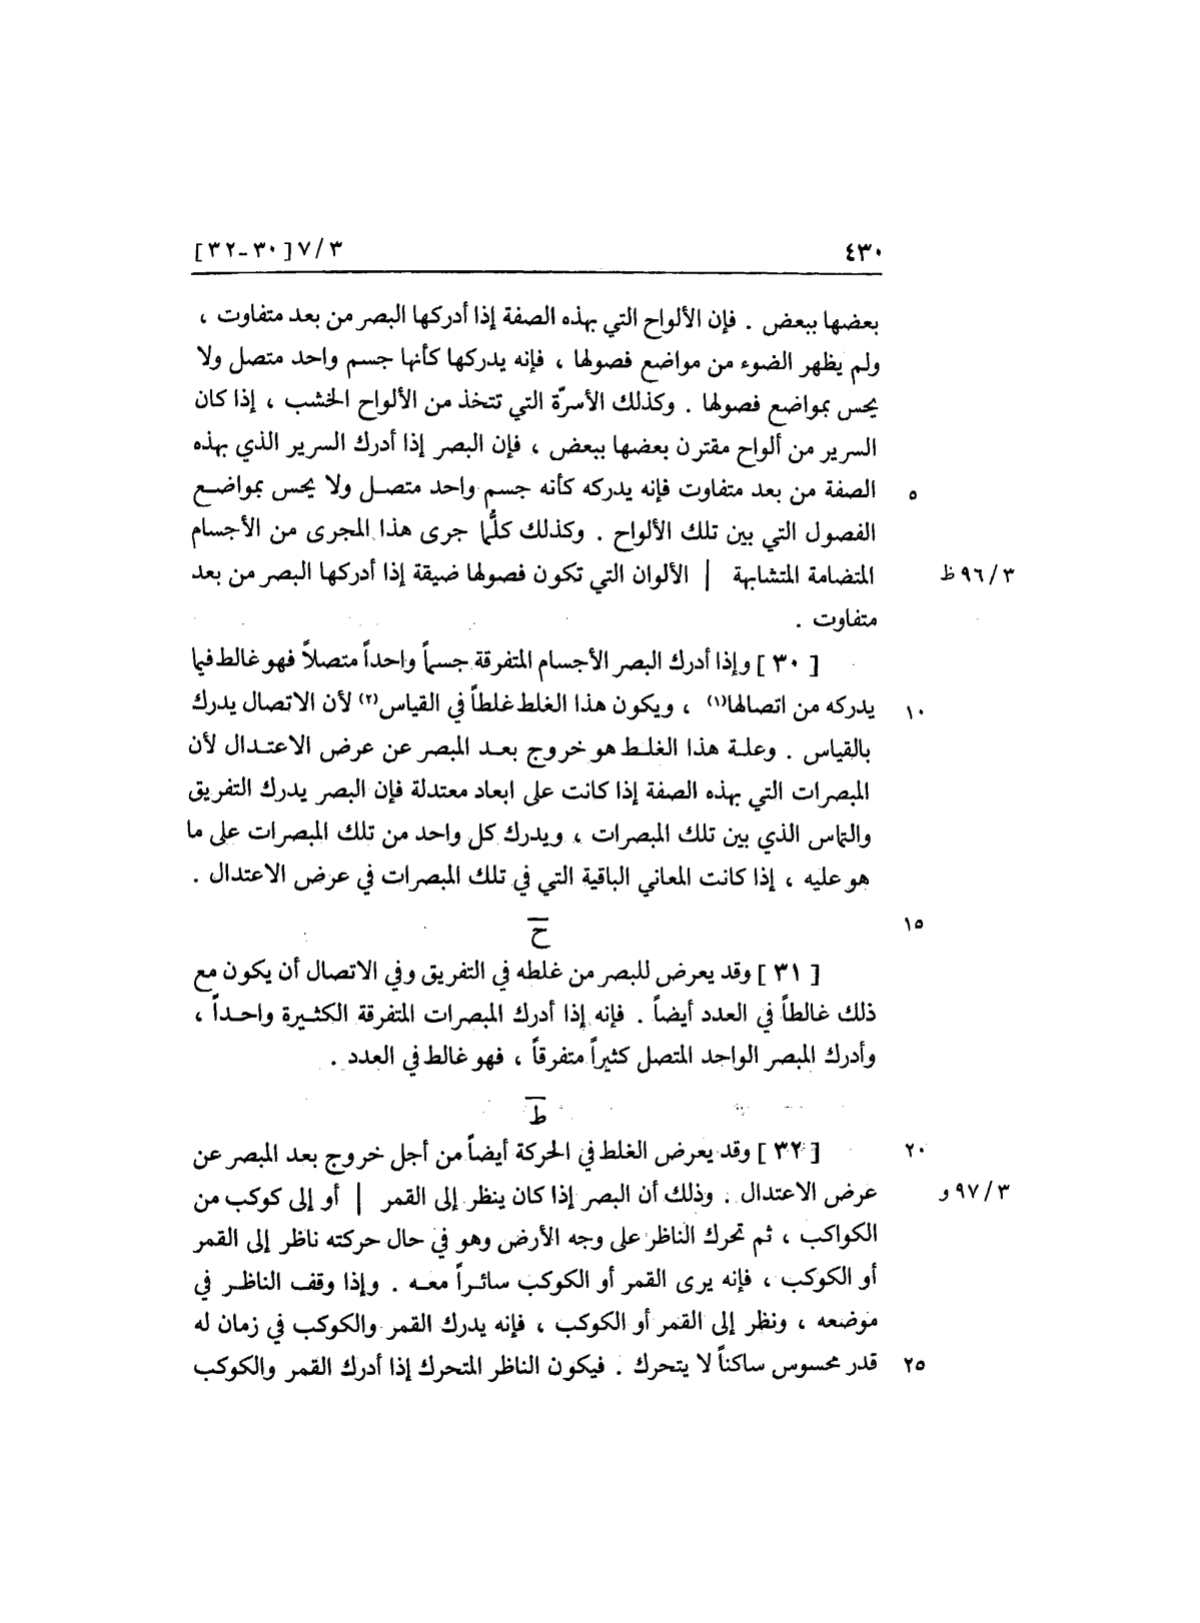 ٤٣٠ ٣/٧ [٣٠-٣٢]
بعضها ببعض . فإن الألواح التي بهذه الصفة إذا أدركها البصر من بعد متفاوت ،
ولم يظهر الضوء من مواضع فصولها ، فإنه يدركها كأنها جسم واحد متصل ولا
يحس بمواضع فصولها . وكذلك الأسرّة التي تتخذ من الألواح الخشب ، إذا كان
السرير من ألواح مقترن بعضها ببعض ، فإن البصر إذا أدرك السرير الذي بهذه
٥ الصفة من بعد متفاوت فإنه يدركه كأنه جسم واحد متصل ولا يحس بمواضع
الفصول التي بين تلك الألواح . وكذلك كلُّما جرى هذا المجرى من الأجسام
٣/٩٦ ظ المتضامة المتشابهة | الألوان التي تكون فصولها ضيقة إذا أدركها البصر من بعد
متفاوت .
[ ٣٠ ] وإذا أدرك البصر الأجسام المتفرقة جسماً واحداً متصلاً فهو غالط فيما
١٠ يدركه من اتصالها(١) ، ويكون هذا الغلط غلطاً في القياس(٢) لأن الاتصال يدرك
بالقياس . وعلة هذا الغلط هو خروج بعد المبصر عن عرض الاعتدال لأن
المبصرات التي بهذه الصفة إذا كانت على ابعاد معتدلة فإن البصر يدرك التفريق
والتماس الذي بين تلك المبصرات ، ويدرك كل واحد من تلك المبصرات على ما
هو عليه ، إذا كانت المعاني الباقية التي في تلك المبصرات في عرض الاعتدال .
١٥ ح
[ ٣١ ] وقد يعرض للبصر من غلطه في التفريق وفي الاتصال أن يكون مع
ذلك غالطاً في العدد أيضاً . فإنه إذا أدرك المبصرات المتفرقة الكثيرة واحداً ،
وأدرك المبصر الواحد المتصل كثيراً متفرقاً ، فهو غالط في العدد .
ط
٢٠ [ ٣٢ ] وقد يعرض الغلط في الحركة أيضاً من أجل خروج بعد المبصر عن
٣/٩٧ و عرض الاعتدال . وذلك أن البصر إذا كان ينظر إلى القمر | أو إلى كوكب من
الكواكب ، ثم تحرك الناظر على وجه الأرض وهو في حال حركته ناظر إلى القمر
أو الكوكب ، فإنه يرى القمر أو الكوكب سائراً معه . وإذا وقف الناظر في
موضعه ، ونظر إلى القمر أو الكوكب ، فإنه يدرك القمر والكوكب في زمان له
٢٥ قدر محسوس ساكناً لا يتحرك . فيكون الناظر المتحرك إذا أدرك القمر والكوكب